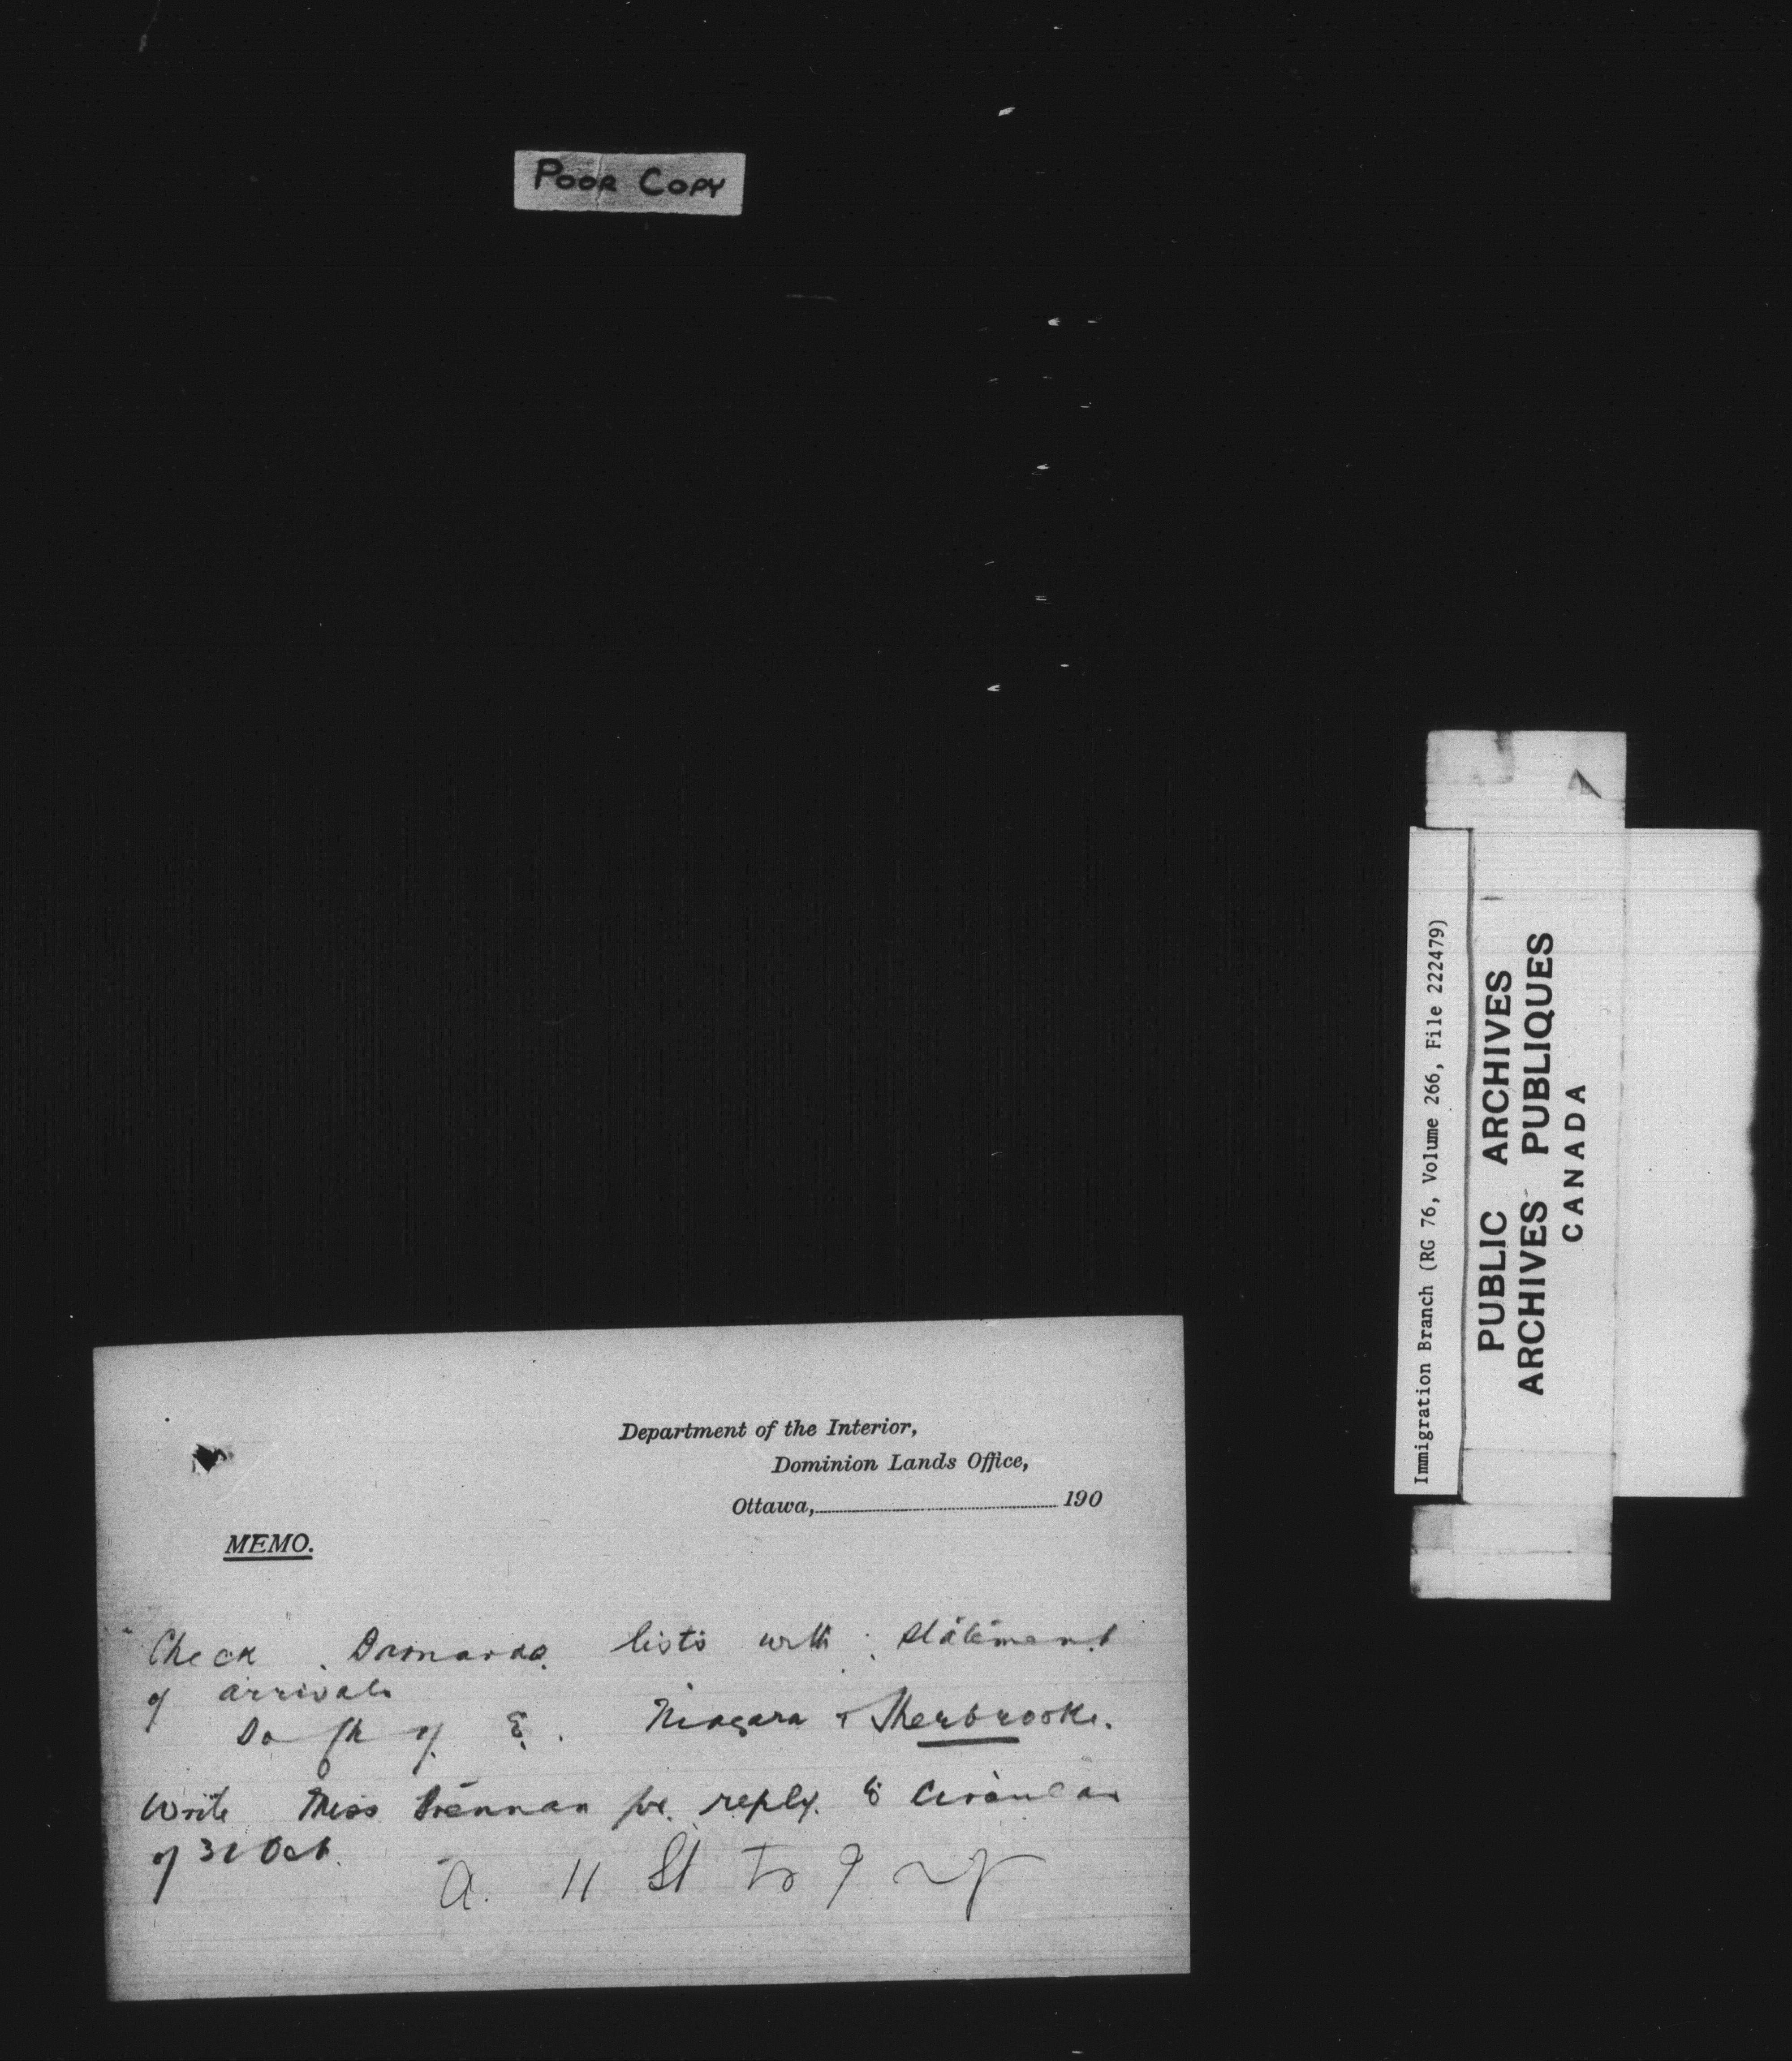 POOR COPY
Department of the Interior,
Dominion Lands Office,
Ottawa, 190
MEMO.
Check Barnardo lists with statement
of arrivals
Do Ch of E. Niagara & Sherbrooke.
Write Miss Brennan for reply to Circular
of 31 Oct.
a. 11 St
Immigration Branch (RG 76, Volume 266, File 222479)
PUBLIC ARCHIVES
ARCHIVES PUBLIQUES
CANADA